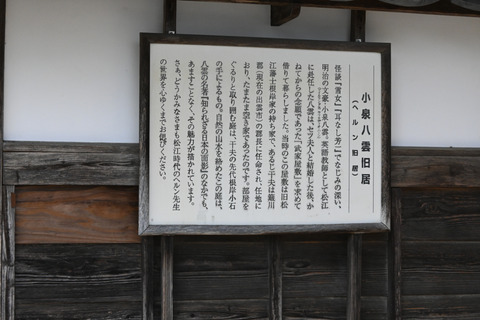 小泉八雲旧居
(ヘルン旧居)
怪談『雪女』『耳なし芳一』でなじみの深い、
明治の文豪・小泉八雲。英語教師として松江
に赴任した八雲は、セツ夫人と結婚した後、か
ねてからの念願であった「武家屋敷」を求めて
借りて暮らしました。当時のこの屋敷は旧松
江藩士根岸家の持ち家で、あるじ干夫は簸川
郡(現在の出雲市)の郡長に任命され、任地に
おり、たまたま空き家であったのです。部屋を
ぐるりと取り囲む庭は、干夫の先代根岸小石
の手によるもの。自然の山水を絡めたこの庭は、
八雲の名著『知られざる日本の面影』のなかでも、
あますことなく、その魅力が描かれています。
さぁ、どうかみなさまも松江時代のヘルン先生
の世界を心ゆくまでお偲びください。